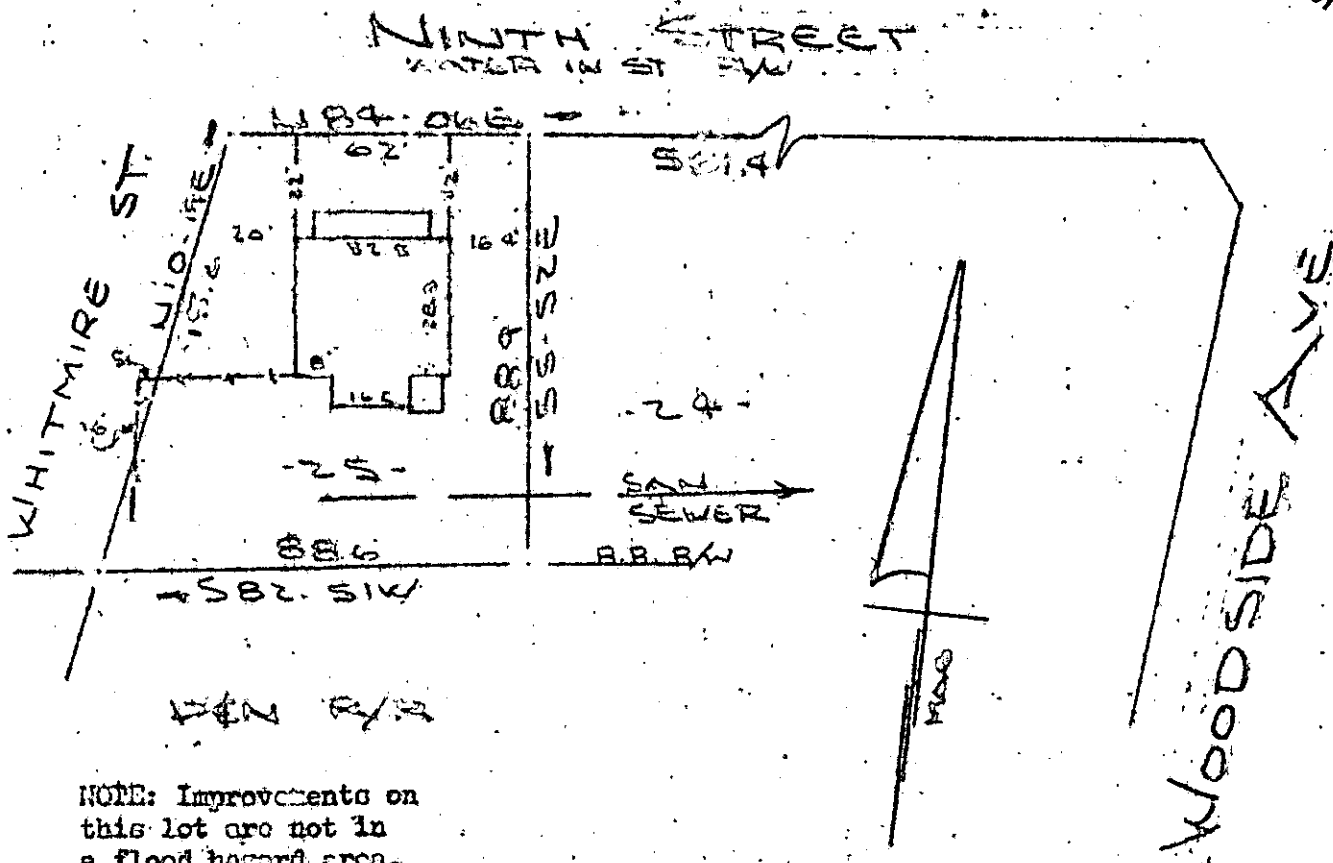 NINTH STREET
WATER IN ST R/W
N 84-06 E
62'
561.4
WHITMIRE ST.
N 10-19 E
22'
32'
20'
16.4'
28.3
8'
16.5
S 5-52 E
-24-
-25-
SAN
SEWER
88.6
R.R. R/W
S 82-51 W
P&N R/R
MAG
WOODSIDE AVE
NOTE: Improvements on
this lot are not in
a flood hazard area.